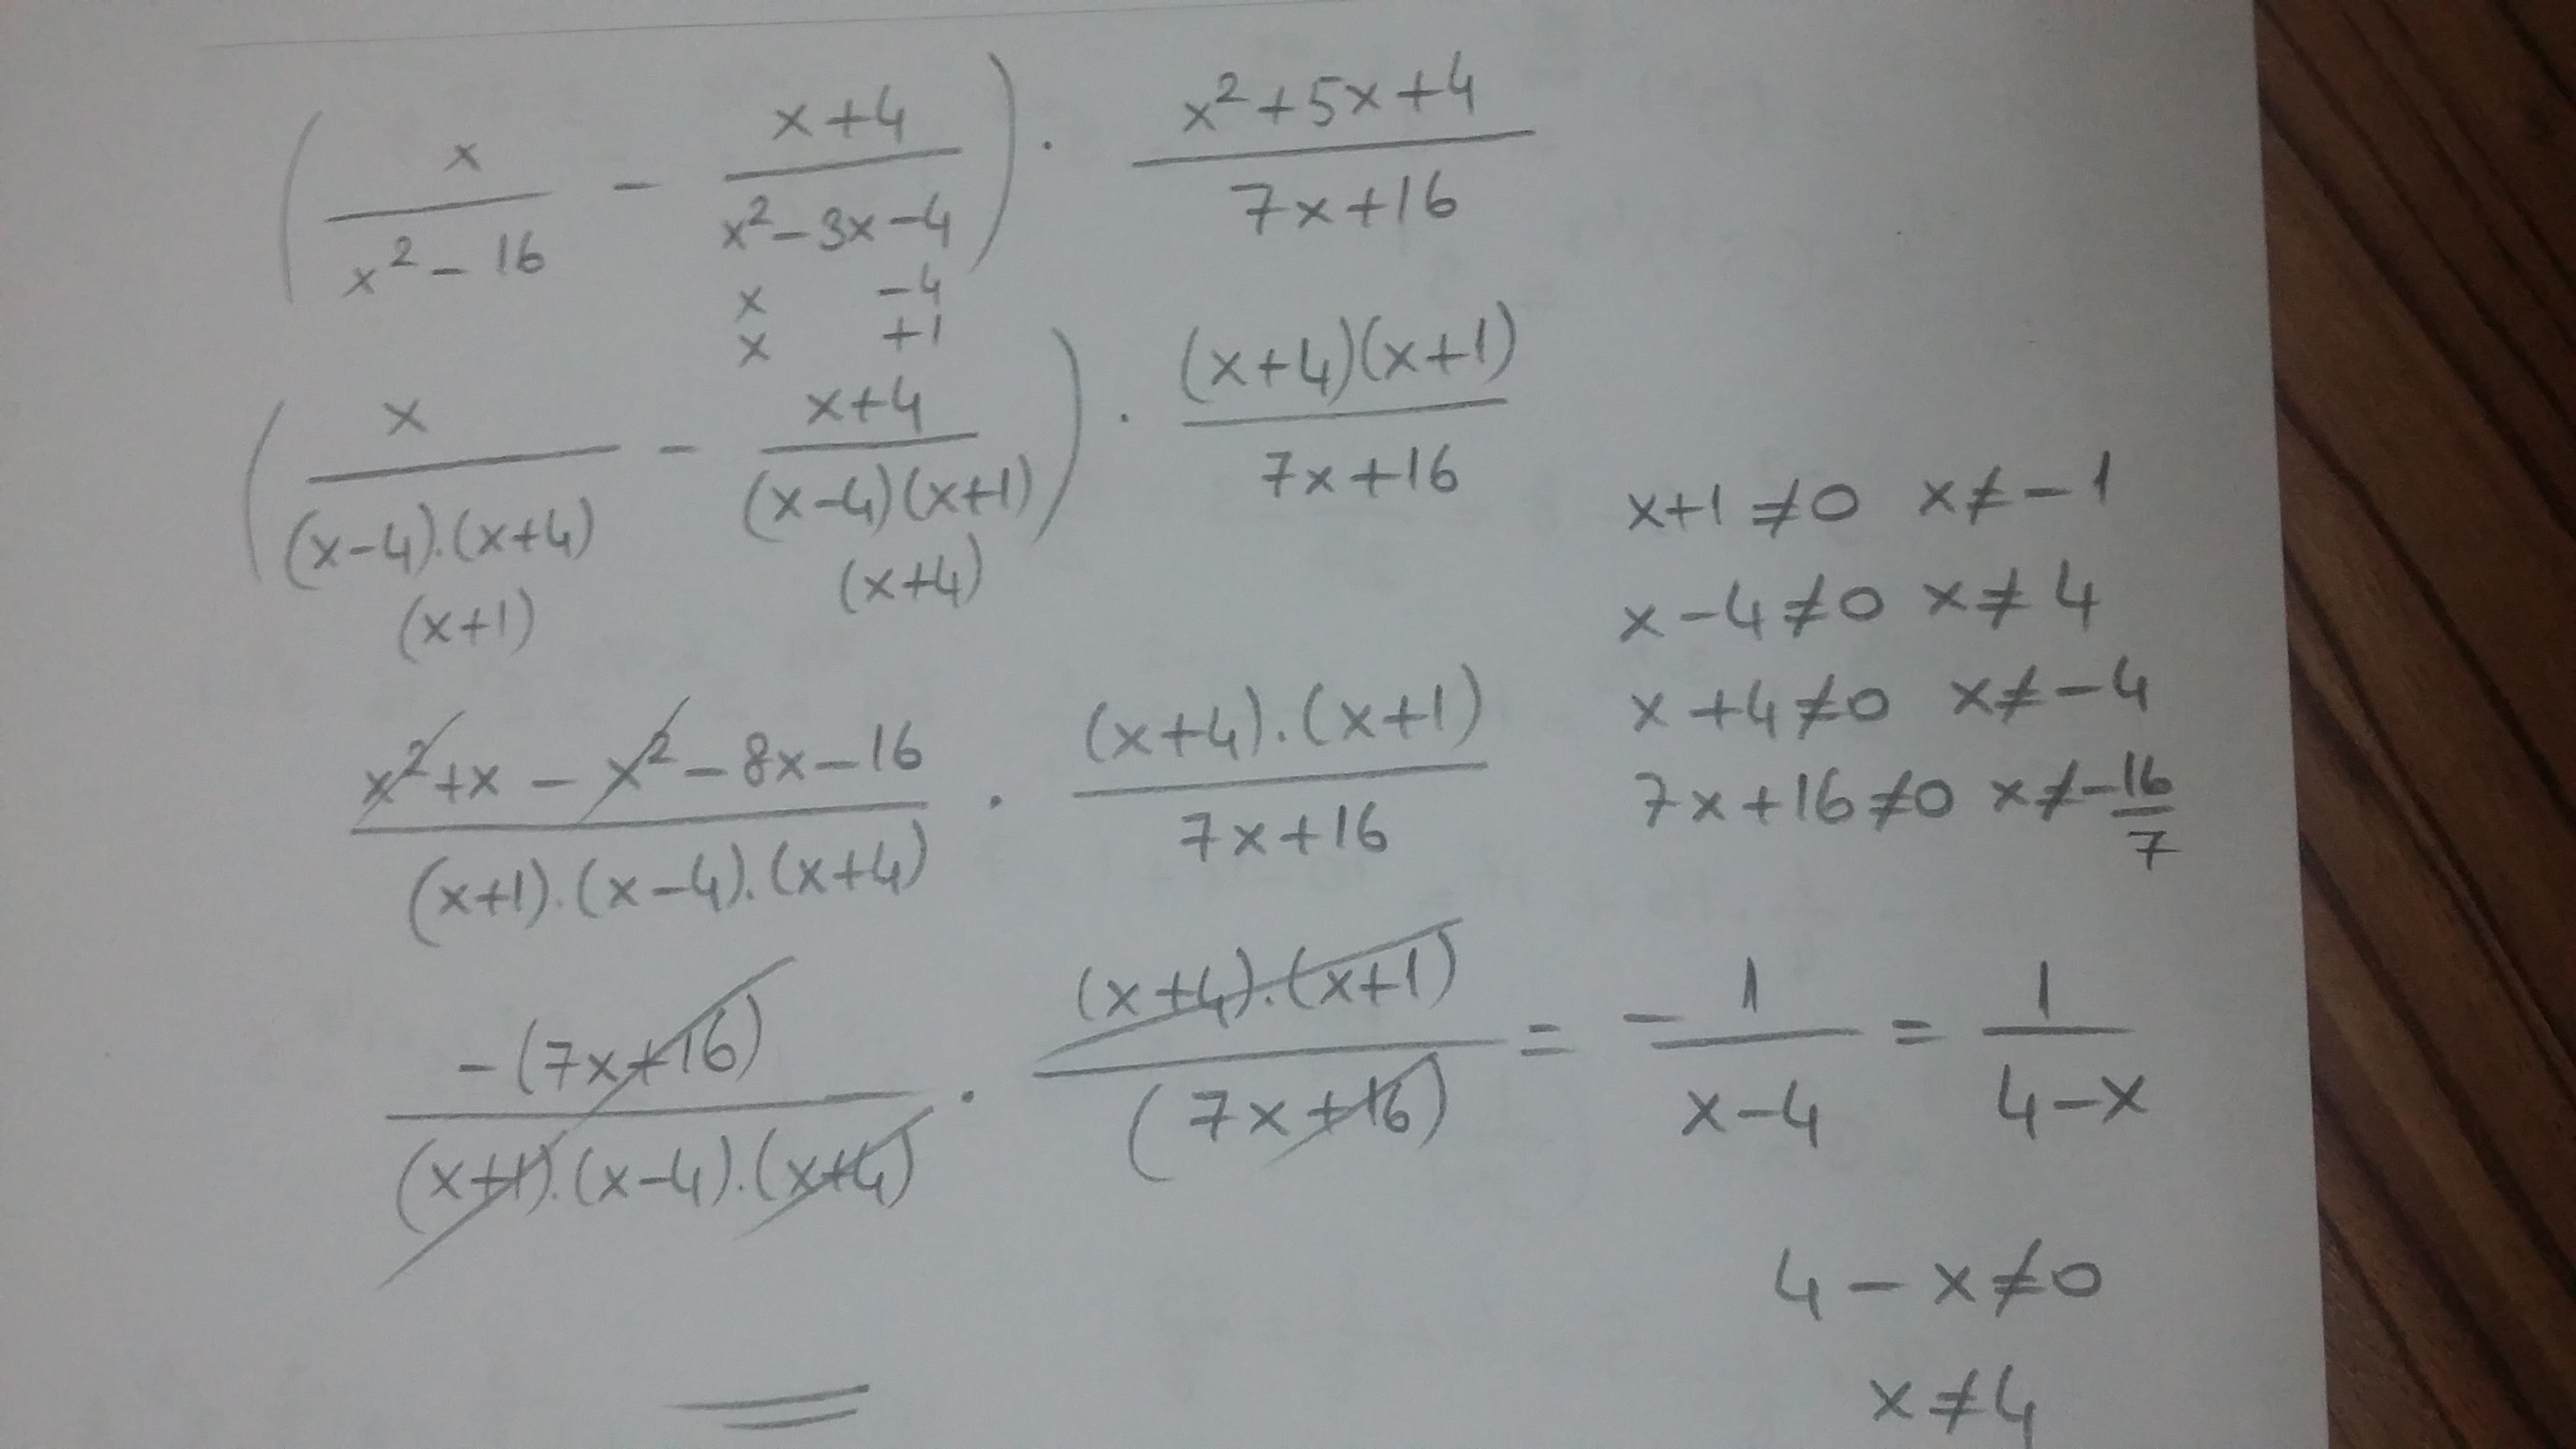 ( x / (x² - 16) - (x+4) / (x² - 3x - 4) ) · (x² + 5x + 4) / (7x + 16)
x -4
x +1
( x / ((x-4).(x+4)) - (x+4) / ((x-4)(x+1)) ) · ((x+4)(x+1)) / (7x+16)
(x+1) (x+4)
x+1 ≠ 0 x ≠ -1
x - 4 ≠ 0 x ≠ 4
x + 4 ≠ 0 x ≠ -4
7x + 16 ≠ 0 x ≠ -16/7
(x² + x - x² - 8x - 16) / ((x+1).(x-4).(x+4)) · ((x+4).(x+1)) / (7x+16)
-(7x+16) / ((x+1).(x-4).(x+4)) · ((x+4).(x+1)) / (7x+16) = - 1 / (x-4) = 1 / (4-x)
4 - x ≠ 0
x ≠ 4